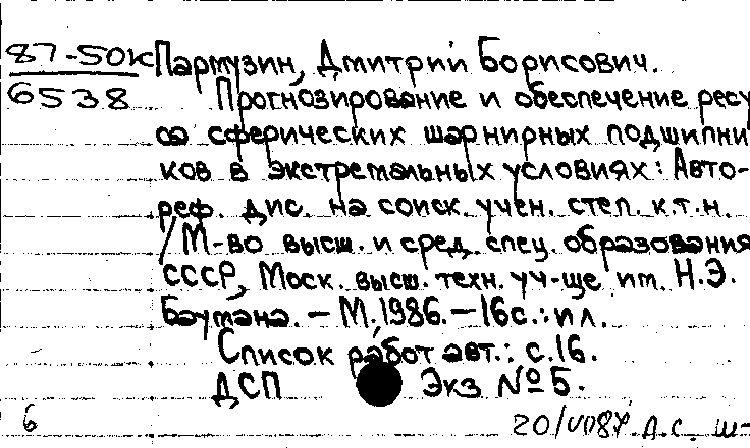 87-50К Пармузин, Дмитрий Борисович.
6538 Прогнозирование и обеспечение ресу
са сферических шарнирных подшипни
ков в экстремальных условиях: Авто-
реф. дис. на соиск. учен. степ. к.т.н.
/М-во высш. и сред. спец. образования
СССР, Моск. высш. техн. уч-ще им. Н.Э.
Баумана. – М.,1986. – 16с.:ил.
Список работ авт.: с.16.
ДСП Экз № 5.
6 20/VIII87. Д.С. Ш-